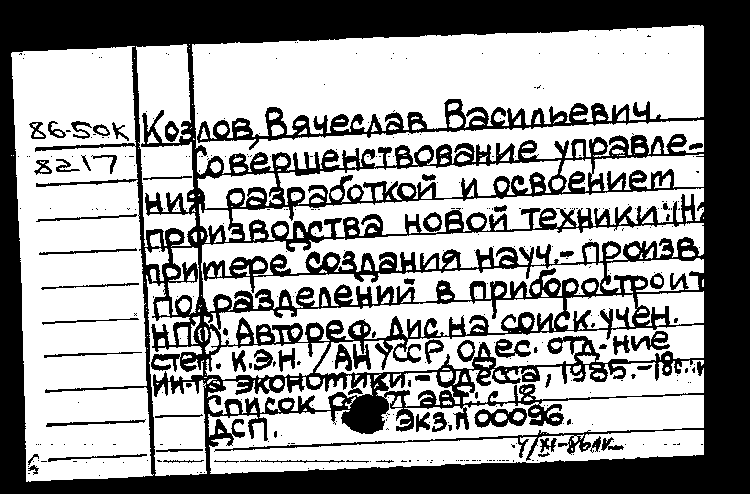 86-50к Козлов, Вячеслав Васильевич.
8217 Совершенствование управле-
ния разработкой и освоением
производства новой техники: (На
примере создания науч.-произв.
подразделений в приборостроит
НПО): Автореф. Дис. на соиск. учен.
степ. к.э.н. /АН УССР, Одес. отд-ние
ин-та экономики.- Одесса, 1985.-18с.:
Список работ авт.: с. 18.
ДСП. Экз.N 00096.